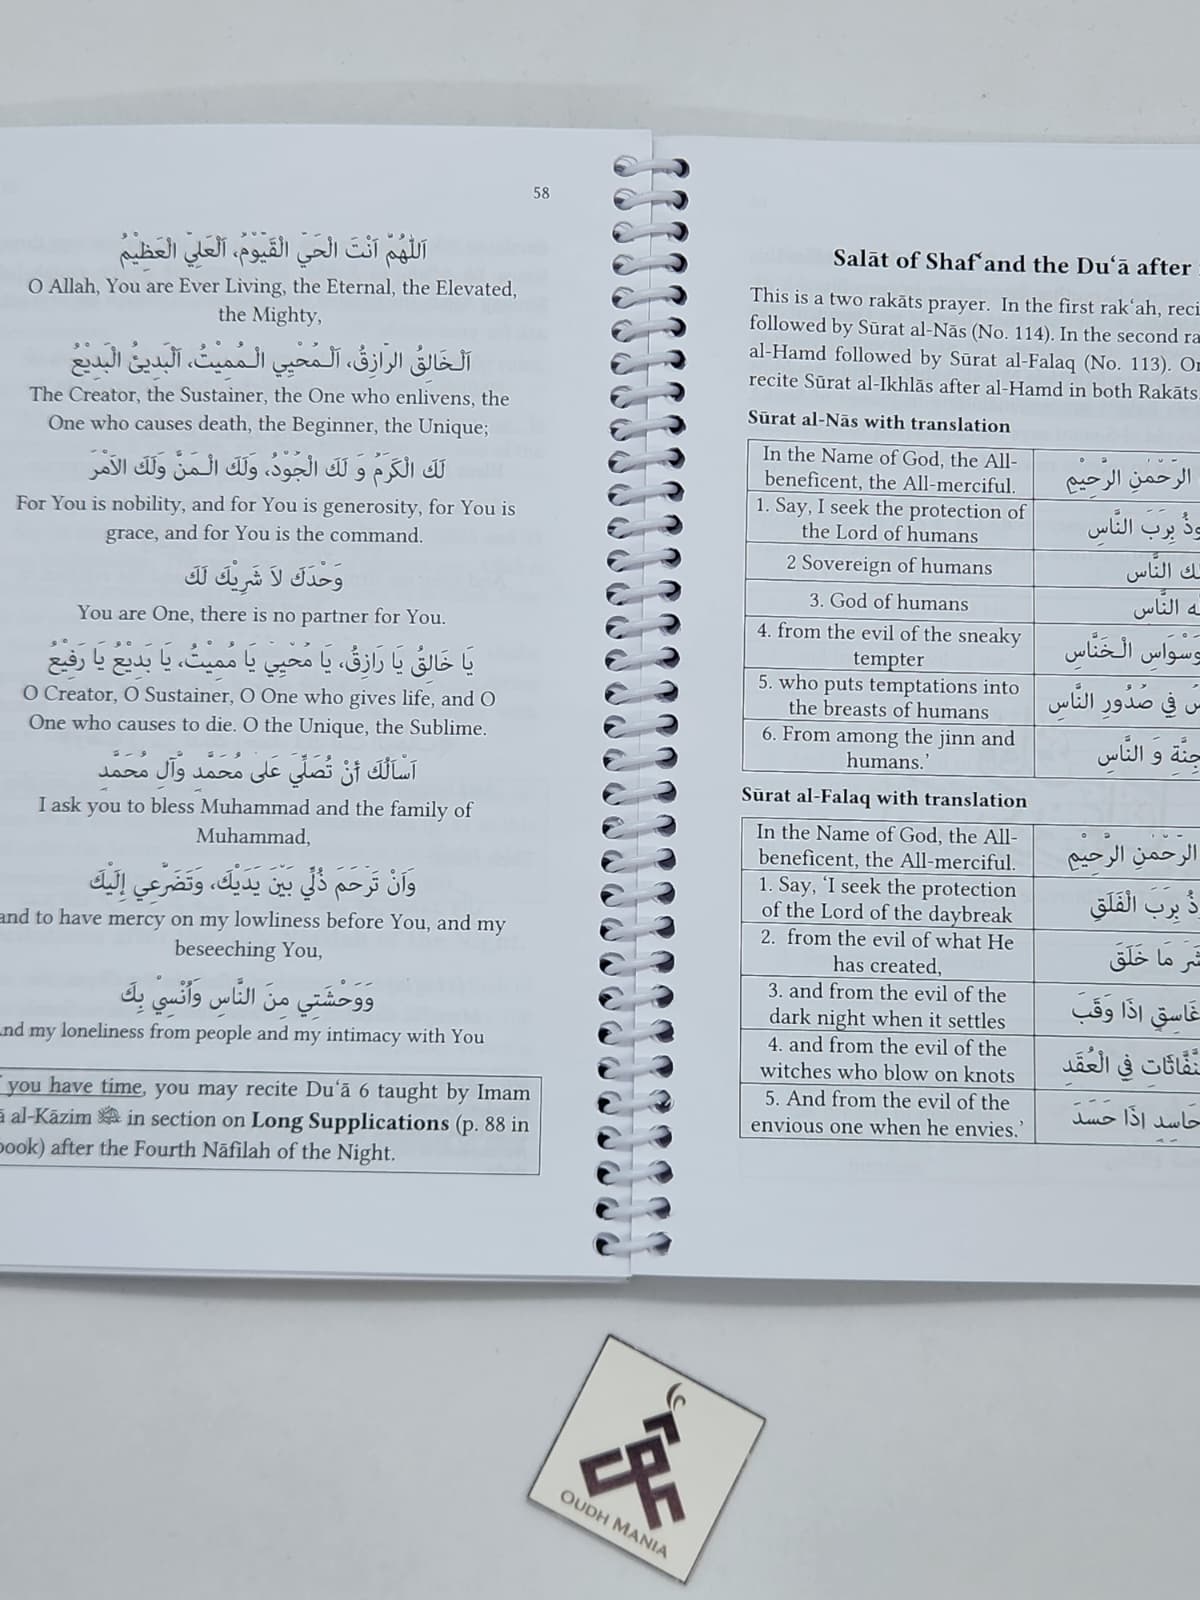 58
اَللّٰهُمَّ اَنْتَ الْحَيُّ الْقَيُّوْمُ، اَلْعَلِيُّ الْعَظِيْمُ
O Allah, You are Ever Living, the Eternal, the Elevated,
the Mighty,
اَلْـخَالِقُ الرَّازِقُ، اَلْـمُحْيِي الْـمُمِيْتُ، اَلْبَدِيئُ الْبَدِيْعُ
The Creator, the Sustainer, the One who enlivens, the
One who causes death, the Beginner, the Unique;
لَكَ الْكَرَمُ وَ لَكَ الْجُوْدُ، وَلَكَ الْـمَنُّ وَلَكَ الاَمْرُ
For You is nobility, and for You is generosity, for You is
grace, and for You is the command.
وَحْدَكَ لاَ شَرِيْكَ لَكَ
You are One, there is no partner for You.
يَا خَالِقُ يَا رَازِقُ، يَا مُحْيِي يَا مُمِيْتُ، يَا بَدِيْعُ يَا رَفِيْعُ
O Creator, O Sustainer, O One who gives life, and O
One who causes to die. O the Unique, the Sublime.
اَسْاَلُكَ أَنْ تُصَلِّيَ عَلَى مُحَمَّدٍ وَّآلِ مُحَمَّدٍ
I ask you to bless Muhammad and the family of
Muhammad,
وَاَنْ تَرْحَمَ ذُلِّي بَيْنَ يَدَيْكَ، وَتَضَرُّعِي إِلَيْكَ
and to have mercy on my lowliness before You, and my
beseeching You,
وَوَحْشَتِي مِنَ النَّاسِ وَاُنْسِيْ بِكَ
nd my loneliness from people and my intimacy with You
you have time, you may recite Du‘ā 6 taught by Imam
al-Kāzim in section on Long Supplications (p. 88 in
book) after the Fourth Nāfilah of the Night.
Salāt of Shaf‘ and the Du‘ā after
This is a two rakāts prayer. In the first rak‘ah, reci
followed by Sūrat al-Nās (No. 114). In the second ra
al-Hamd followed by Sūrat al-Falaq (No. 113). Or
recite Sūrat al-Ikhlās after al-Hamd in both Rakāts
Sūrat al-Nās with translation
In the Name of God, the All-
beneficent, the All-merciful.
الرَّحْمٰنِ الرَّحِيْمِ
1. Say, I seek the protection of
the Lord of humans
بِرَبِّ النَّاسِ
2 Sovereign of humans
النَّاسِ
3. God of humans
النَّاسِ
4. from the evil of the sneaky
tempter
وَسْوَاسِ الْـخَنَّاسِ
5. who puts temptations into
the breasts of humans
فِي صُدُورِ النَّاسِ
6. From among the jinn and
humans.’
جِنَّةِ وَ النَّاسِ
Sūrat al-Falaq with translation
In the Name of God, the All-
beneficent, the All-merciful.
الرَّحْمٰنِ الرَّحِيْمِ
1. Say, ‘I seek the protection
of the Lord of the daybreak
بِرَبِّ الْفَلَقِ
2. from the evil of what He
has created,
شَرِّ مَا خَلَقَ
3. and from the evil of the
dark night when it settles
غَاسِقٍ اِذَا وَقَبَ
4. and from the evil of the
witches who blow on knots
نَّفَّاثَاتِ فِي الْعُقَدِ
5. And from the evil of the
envious one when he envies.’
حَاسِدٍ اِذَا حَسَدَ
OUDH MANIA